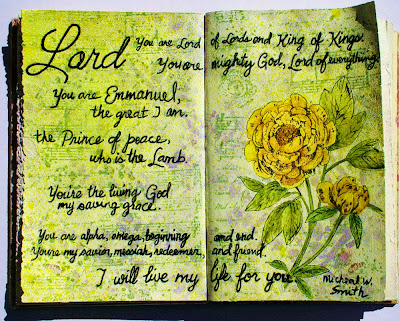 Lord You are Lord of Lords and King of Kings.
You are mighty God, Lord of everything.
You are Emmanuel,
the great I am.
the Prince of peace,
who is the Lamb.
You're the living God
my saving grace.
You are alpha, omega, beginning and end.
You're my savior, messiah, redeemer, and friend.
I will live my life for you
Micheal W.
Smith